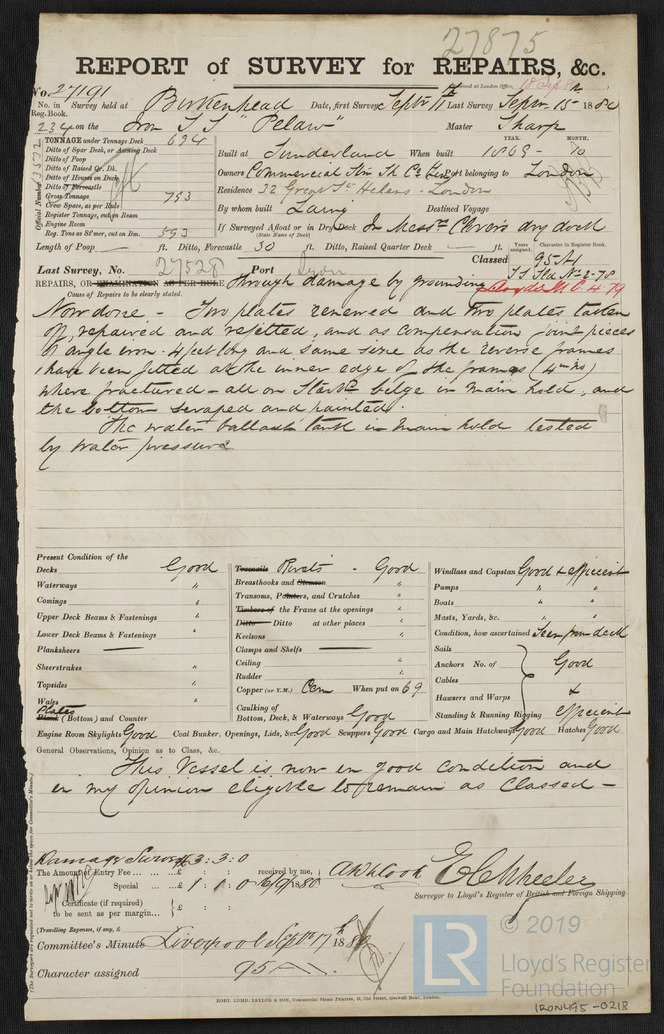 27875
REPORT of SURVEY for REPAIRS, &c.
No. 27191
No. in Reg. Book. Survey held at Birkenhead Date, first Survey Septr 11 Last Survey Septr 15 1880
234 on the Iron S S "Pelaw" Master Sharp
TONNAGE under Tonnage Deck 694
Ditto of Spar Deck, or Awning Deck
Ditto of Poop
Ditto of Raised Qr. Dk.
Ditto of Houses on Deck
Ditto of Forecastle
Gross Tonnage 753
Crew Space, as per Rule
Register Tonnage, cut on Beam
Engine Room
Reg. Tons as St'mer, cut on Bm. 593
Official Number
Built at Sunderland When built YEAR. 1869 MONTH. 10
Owners Commercial Stm Sh Co Port belonging to London
Residence 32 Great St Helens - London
By whom built Laing Destined Voyage
If Surveyed Afloat or in Dry Dock In Messrs Clovers dry dock
(State Name of Dock)
Length of Poop — ft. Ditto, Forecastle 30 ft. Ditto, Raised Quarter Deck — ft.
Years assigned. Character in Register Book.
Last Survey, No. 27528 Port Lyon Classed 95A1
SS Sld No 2-78
REPAIRS, OR EXAMINATION AS PER RULE Through damage by grounding
Lloyds M.C. 4.79
Cause of Repairs to be clearly stated.
Now done - Two plates renewed and two plates taken
off, repaired and refitted, and as compensation joint pieces
of angle iron - 4 feet long and same size as the reverse frames
have been fitted at the inner edge of the frames (4 in no)
where fractured - all on Starbd bilge in main hold, and
the bottom scraped and painted.
The water ballast tank in main hold tested
by water pressure
Present Condition of the
Decks Good
Waterways "
Comings "
Upper Deck Beams & Fastenings "
Lower Deck Beams & Fastenings "
Planksheers —
Sheerstrakes "
Topsides "
Wales "
Plates
Plank (Bottom) and Counter
Treenails Rivets - Good
Breasthooks and Stemson "
Transoms, Pointers, and Crutches "
Timbers of the Frame at the openings "
Ditto Ditto at other places "
Keelsons "
Clamps and Shelfs —
Ceiling "
Rudder "
Copper (or Y.M.) Cem When put on 69
Caulking of
Bottom, Deck, & Waterways Good
Windlass and Capstan Good & efficient
Pumps " "
Boats " "
Masts, Yards, &c. " "
Condition, how ascertained Seen from deck
Sails
Anchors No. of Good
Cables
Hawsers and Warps &
Standing & Running Rigging efficient
Engine Room Skylights Good Coal Bunker, Openings, Lids, &c. Good Scuppers Good Cargo and Main Hatchways Good Hatches Good
General Observations, Opinion as to Class, &c.
This Vessel is now in good condition and
in my opinion eligible to remain as Classed -
Damage Survey £3:3:0
The Amount of Entry Fee ... £ : : received by me,
Special ... £ 1:1:0 1880
Certificate (if required)
to be sent as per margin... £ : :
E C Wheeler
Surveyor to Lloyd's Register of British and Foreign Shipping.
(Travelling Expenses, if any, £
Committee's Minute Liverpool Septr 17th 1880
Character assigned 95A1.
ROBT. EDMD. TAYLOR & SON, Commercial Steam Printers, 19, Old Street, Goswell Road, London.
LR
© 2019
Lloyd's Register
Foundation
IRON495-0218